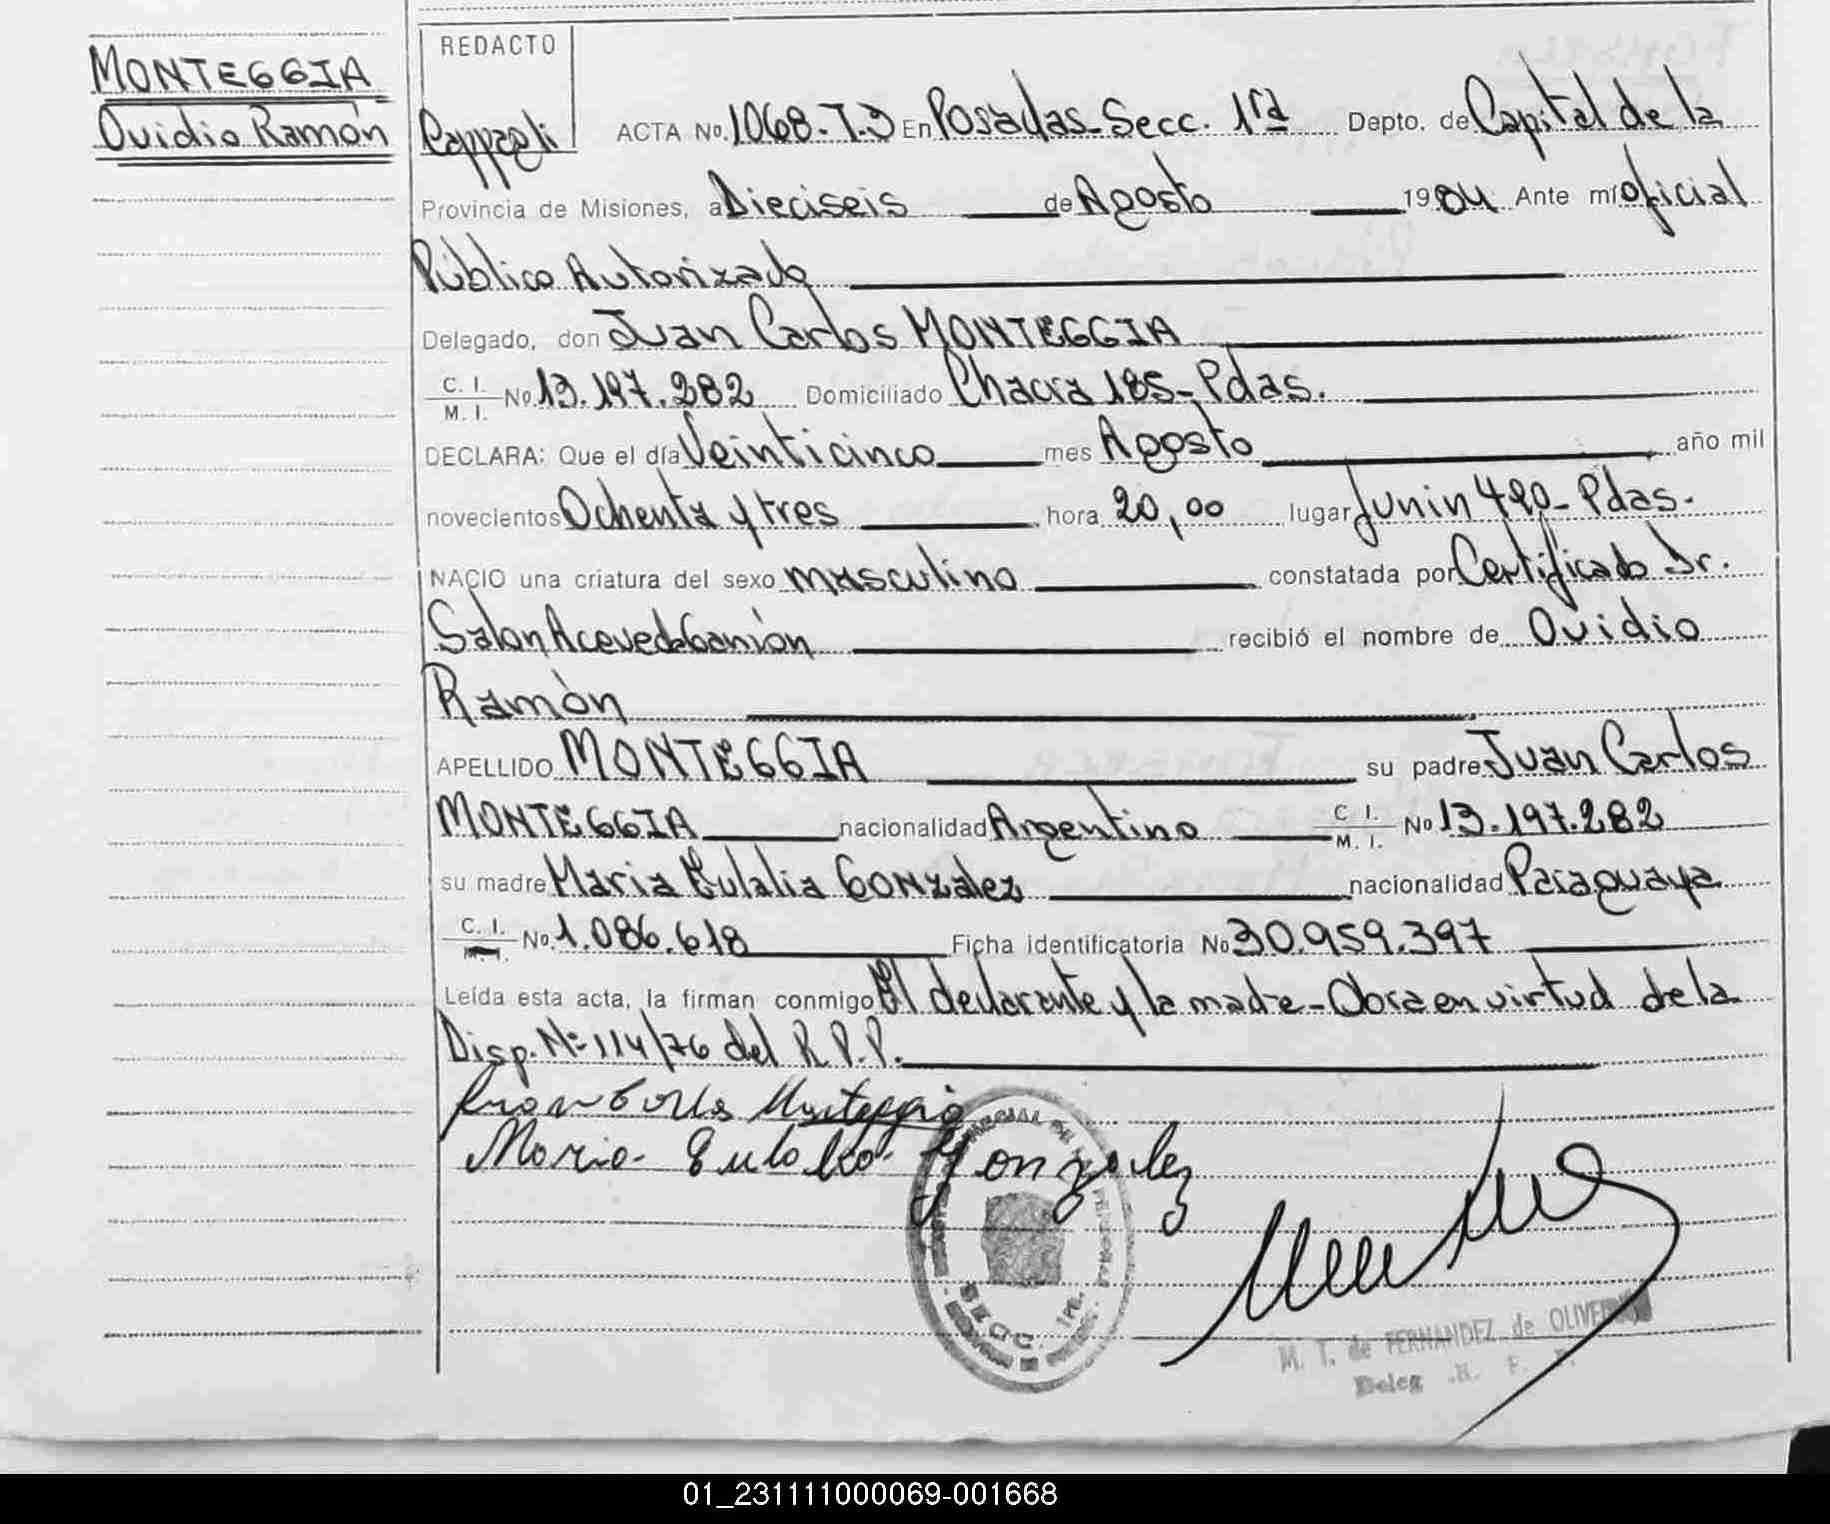 MONTEGGIA
Ovidio Ramón
REDACTO
ACTA No. 1068-T.3 En Posadas-Secc. 1ra Depto. de Capital de la
Provincia de Misiones, a Dieciseis de Agosto 1984 Ante mí oficial
Público Autorizado
Delegado, don Juan Carlos MONTEGGIA
C. I. M. I. No 13.197.282 Domiciliado Chacra 185-Pdas.
DECLARA: Que el día Veinticinco mes Agosto año mil
novecientos Ochenta y tres hora 20,00 lugar Junin 420-Pdas-
NACIO una criatura del sexo masculino constatada por Certificado Dr.
Acevedo recibió el nombre de Ovidio
Ramón
APELLIDO MONTEGGIA su padre Juan Carlos
MONTEGGIA nacionalidad Argentino C. I. M. I. No 13.197.282
su madre Maria Eulalia GONzalez nacionalidad Paraguaya
C. I. No. 1.086.618 Ficha identificatoria No 30.959.397
Leída esta acta, la firman conmigo El declarante y la madre-Obra en virtud de la
Disp. Nº 114/76 del R.P.P.
Juan Carlos Monteggia
Maria Eulalia Gonzalez
SECC. 1RA.
M. T. de FERNANDEZ de OLIVEIRA
Deleg. R. P. P.
01_231111000069-001668